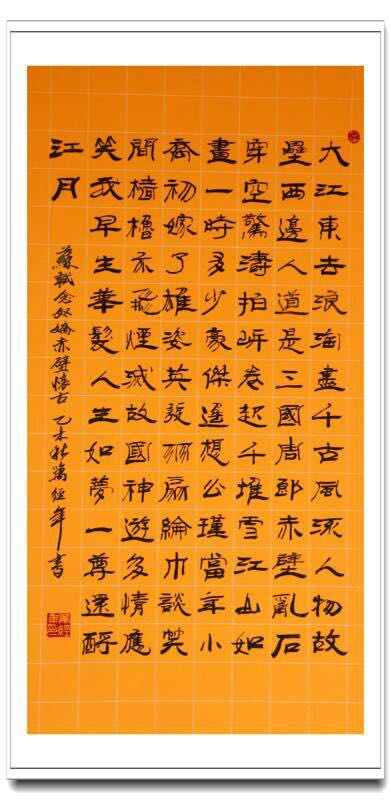 大江東去浪淘盡千古風流人物故
壘西邊人道是三國周郎赤壁亂石
穿空驚濤拍岸卷起千堆雪江山如
畫一時多少豪傑遙想公瑾當年小
喬初嫁了雄姿英發羽扇綸巾談笑
間檣櫓灰飛煙滅故國神遊多情應
笑我早生華髮人生如夢一尊還酹
江月
蘇軾念奴嬌赤壁懷古 乙未秋萬經年書